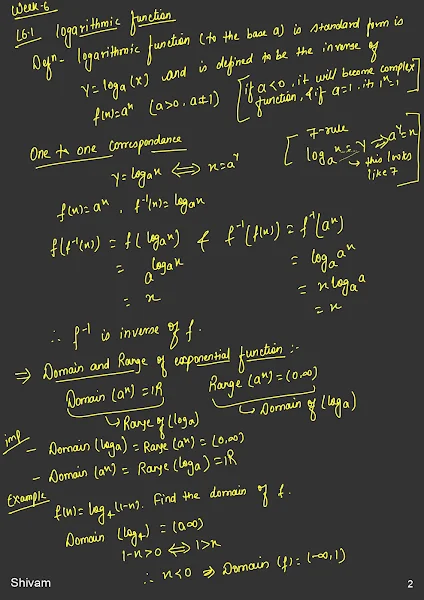 Week-6
L6.1 logarithmic function
Defn - logarithmic function (to the base a) is standard form is
y = loga(x) and is defined to be the inverse of
f(x) = a^x (a>0, a≠1) [if a<0, it will become complex
function, & if a=1, it's 1^x=1]
One to one correspondance
y = logax ⟺ x = a^y
[7-rule
logax = y ⇒ a^y = x
→ this looks
like 7]
f(x) = a^x, f⁻¹(x) = logax
f(f⁻¹(x)) = f(logax) & f⁻¹(f(x)) = f⁻¹(a^x)
= a^logax = logaa^x
= x = x logaa
= x
∴ f⁻¹ is inverse of f.
⇒ Domain and Range of exponential function :-
Domain (a^x) = ℝ Range (a^x) = (0,∞)
↳ Range of (loga) ↳ Domain of (loga)
imp
- Domain (loga) = Range (a^x) = (0,∞)
- Domain (a^x) = Range (loga) = ℝ
Example
f(x) = log4(1-x). Find the domain of f.
Domain (log4) = (0,∞)
1-x>0 ⟺ 1>x
∴ x<0 ⇒ Domain (f) = (-∞,1)
Shivam 2